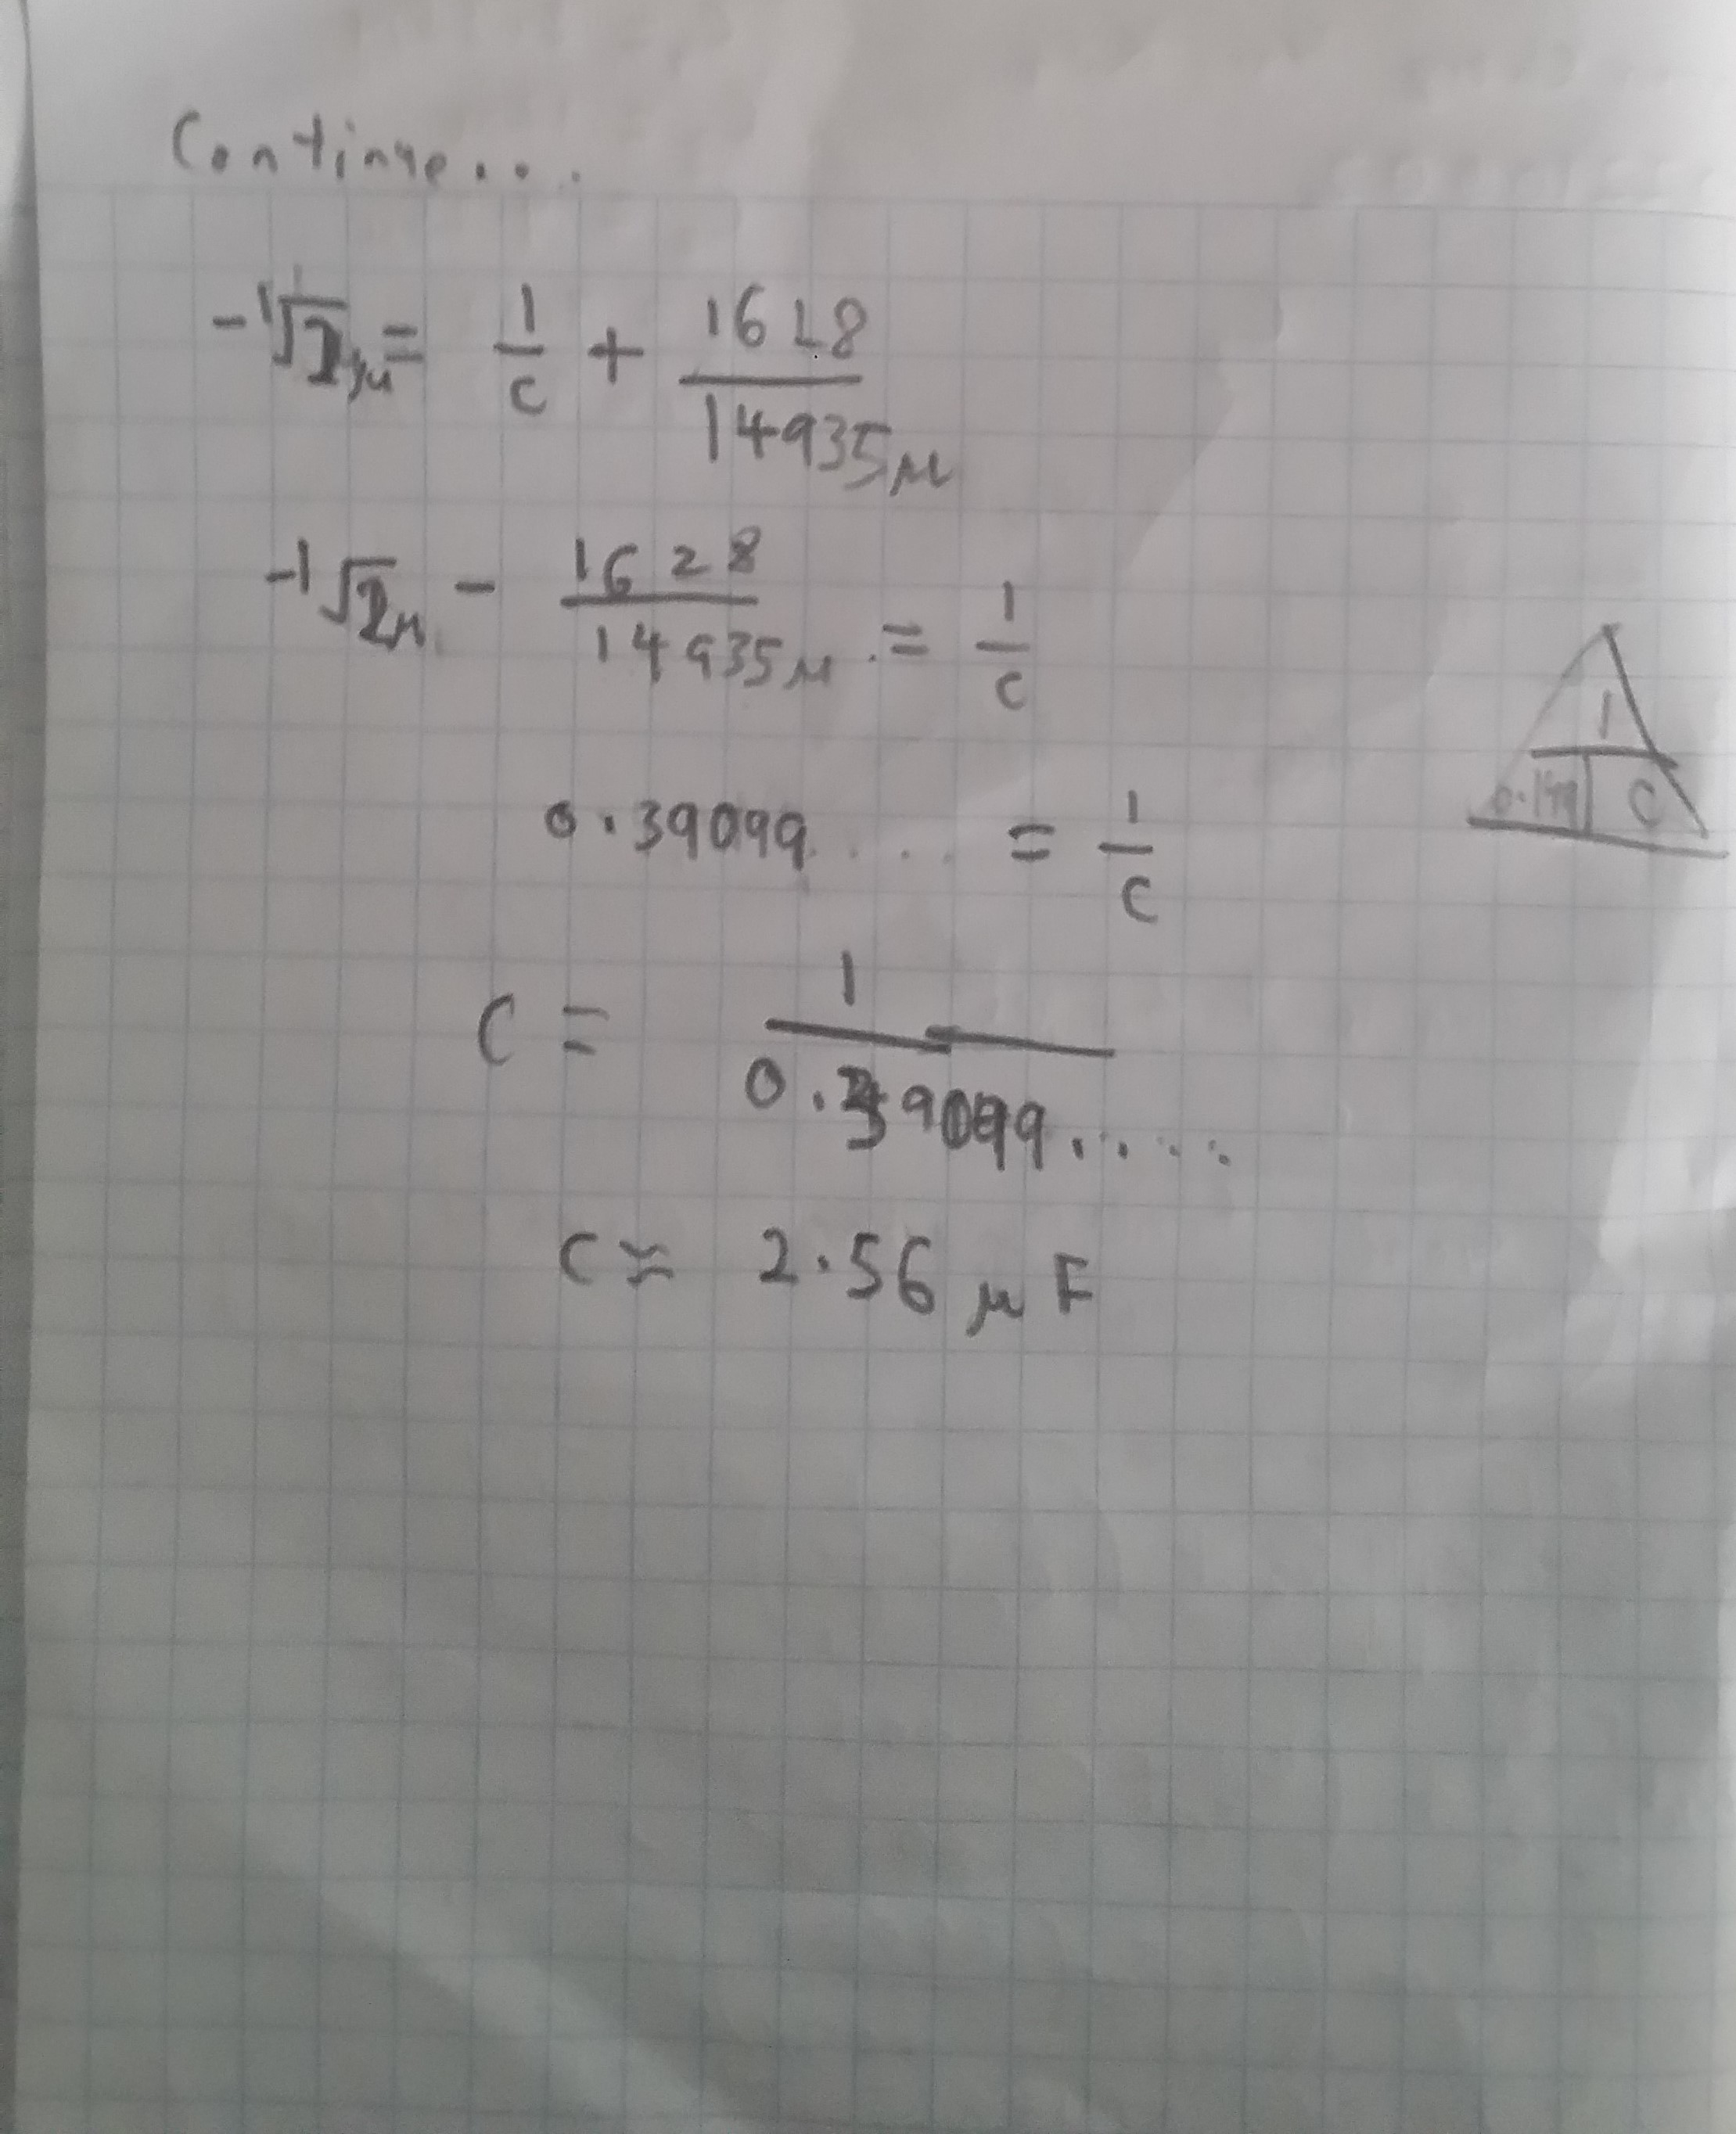 Continue...
-1/√2μ = 1/C + 1628/14935μ
-1√2μ - 1628/14935μ = 1/C
0.39099.... = 1/C
C = 1/0.39099.....
C ≈ 2.56 μF
1
C